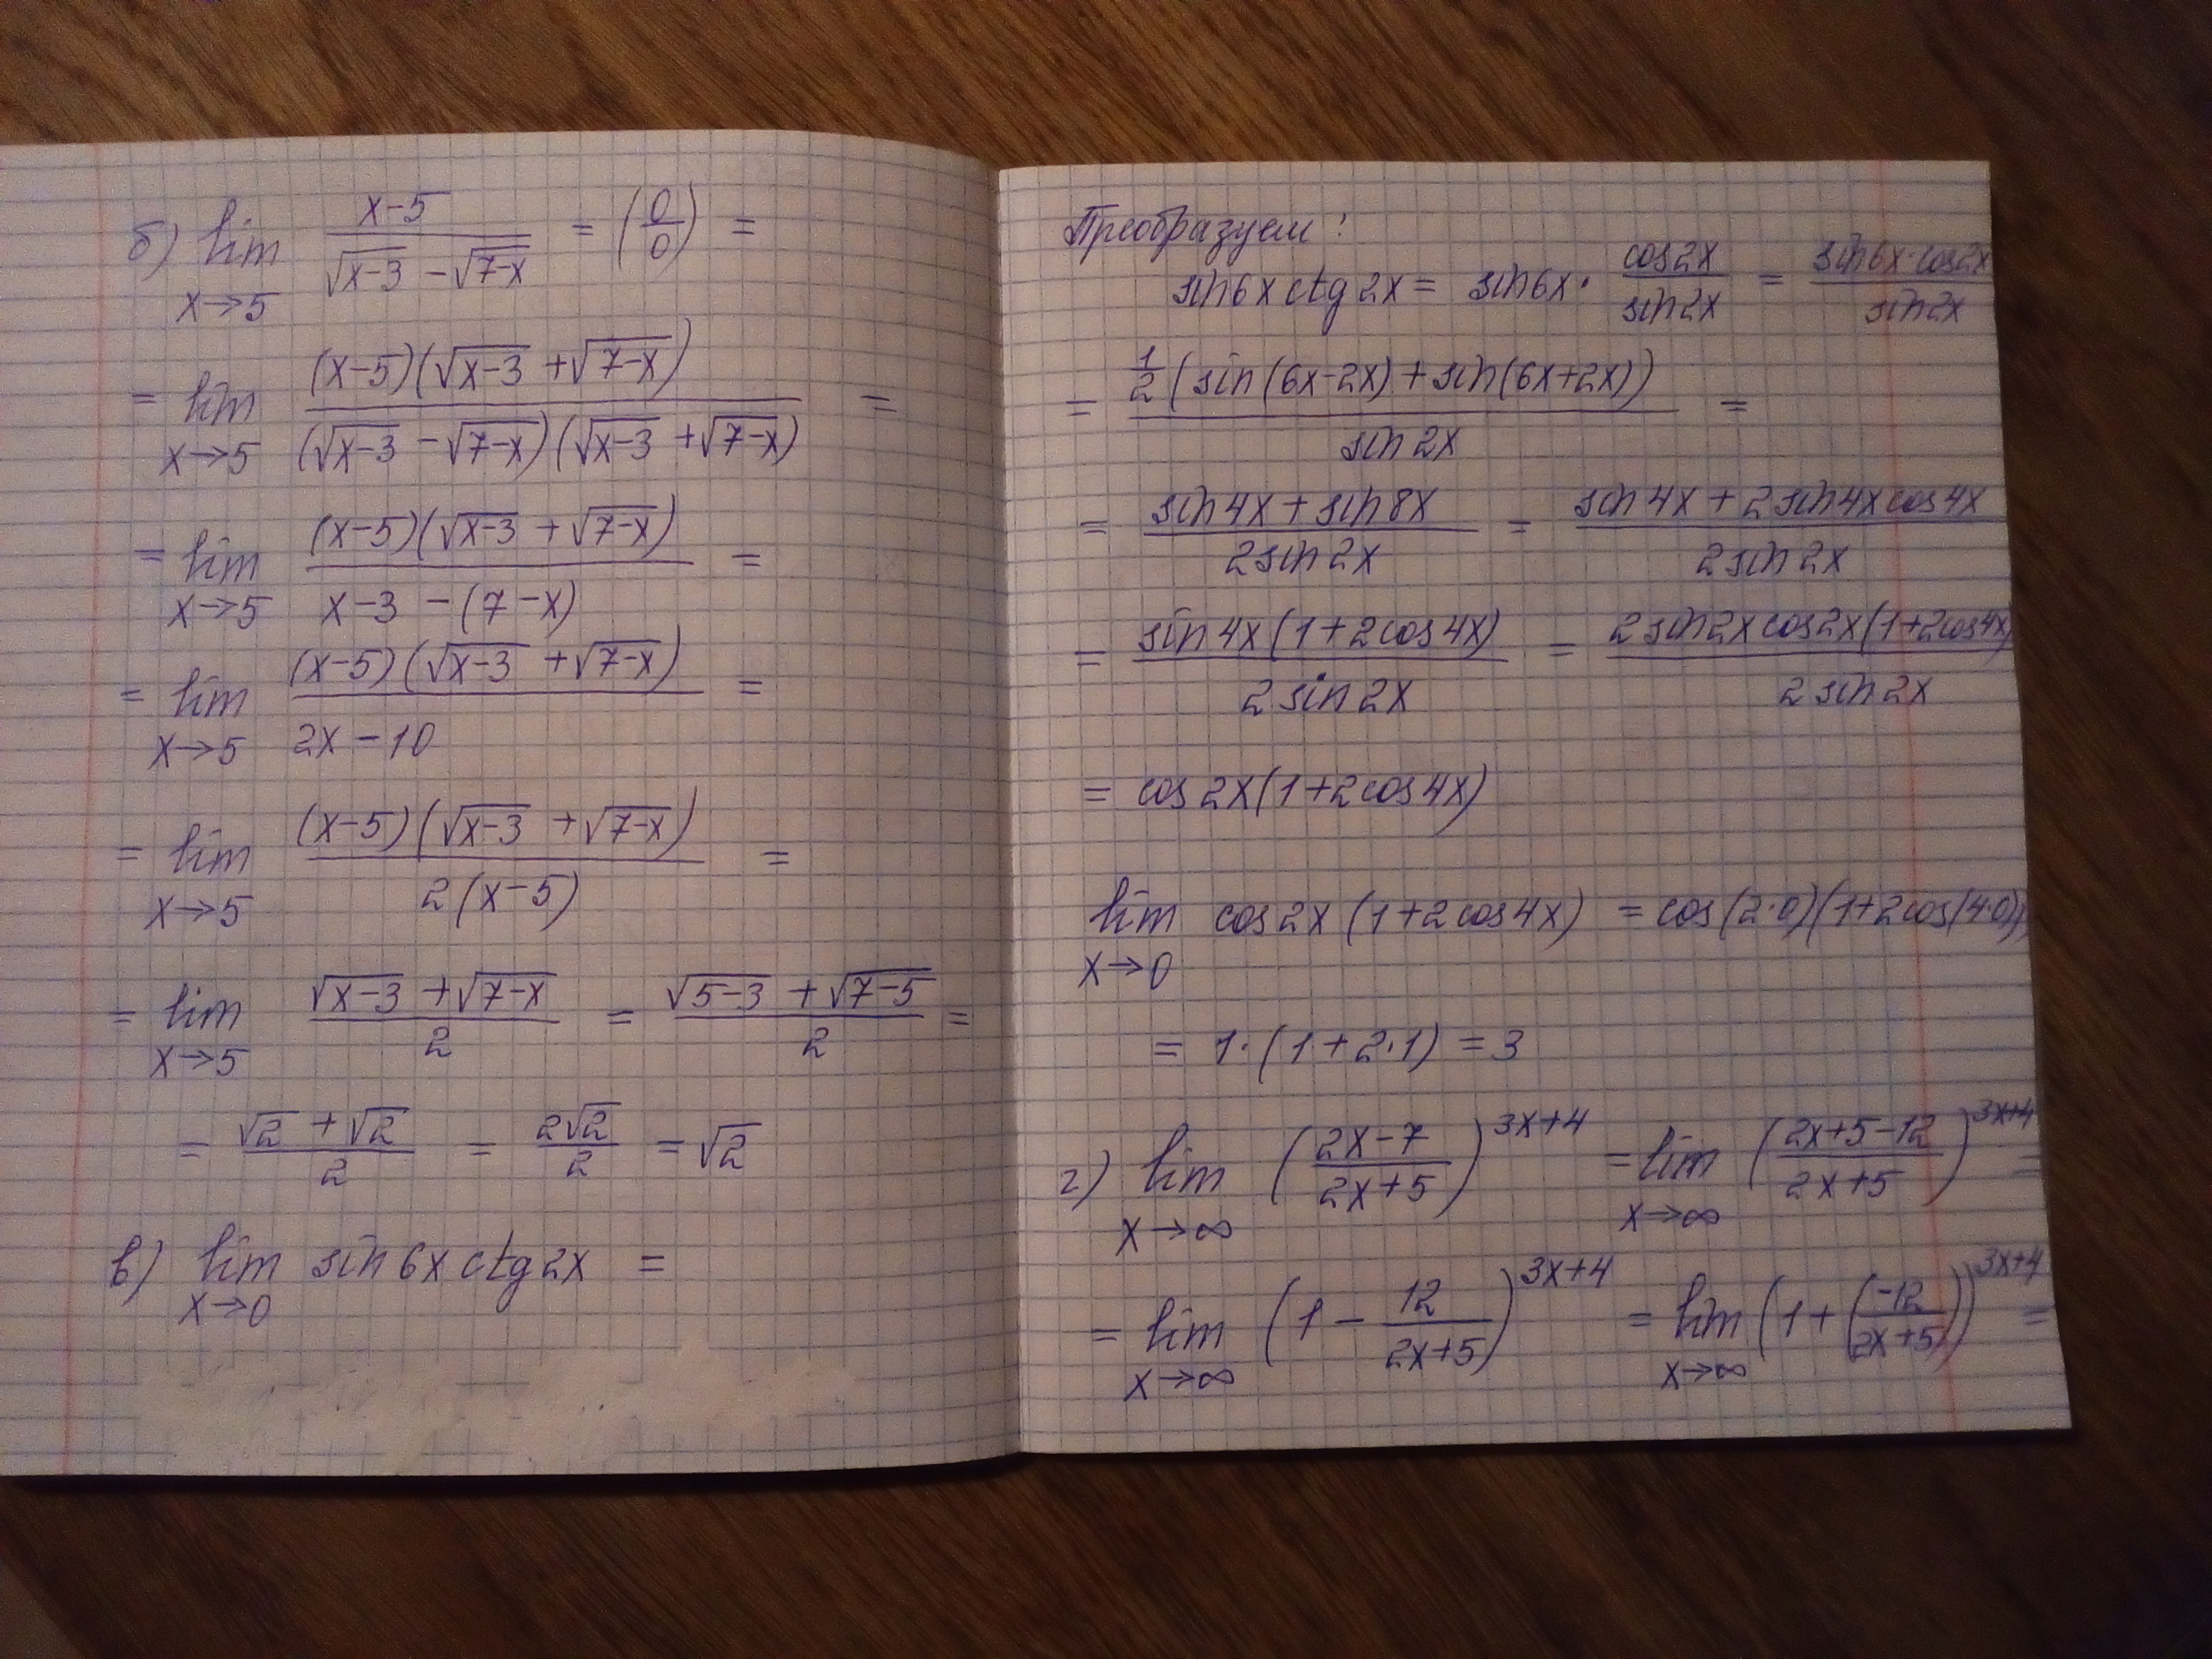 б) lim x→5 (x-5)/(√(x-3) - √(7-x)) = (0/0) =
= lim x→5 ((x-5)(√(x-3) + √(7-x)))/((√(x-3) - √(7-x))(√(x-3) + √(7-x))) =
= lim x→5 ((x-5)(√(x-3) + √(7-x)))/(x-3-(7-x)) =
= lim x→5 ((x-5)(√(x-3) + √(7-x)))/(2x-10) =
= lim x→5 ((x-5)(√(x-3) + √(7-x)))/(2(x-5)) =
= lim x→5 (√(x-3) + √(7-x))/2 = (√(5-3) + √(7-5))/2 =
= (√2 + √2)/2 = 2√2/2 = √2
в) lim x→0 sin6x ctg2x =
Преобразуем:
sin6x ctg2x = sin6x · cos2x/sin2x = (sin6x·cos2x)/sin2x
= (1/2 (sin(6x-2x) + sin(6x+2x)))/sin2x =
= (sin4x + sin8x)/(2sin2x) = (sin4x + 2sin4xcos4x)/(2sin2x)
= (sin4x(1+2cos4x))/(2sin2x) = (2sin2xcos2x(1+2cos4x))/(2sin2x)
= cos2x(1+2cos4x)
lim x→0 cos2x(1+2cos4x) = cos(2·0)(1+2cos(4·0))
= 1·(1+2·1) = 3
г) lim x→∞ ((2x-7)/(2x+5))^(3x+4) = lim x→∞ ((2x+5-12)/(2x+5))^(3x+4) =
= lim x→∞ (1 - 12/(2x+5))^(3x+4) = lim x→∞ (1 + (-12/(2x+5)))^(3x+4) =